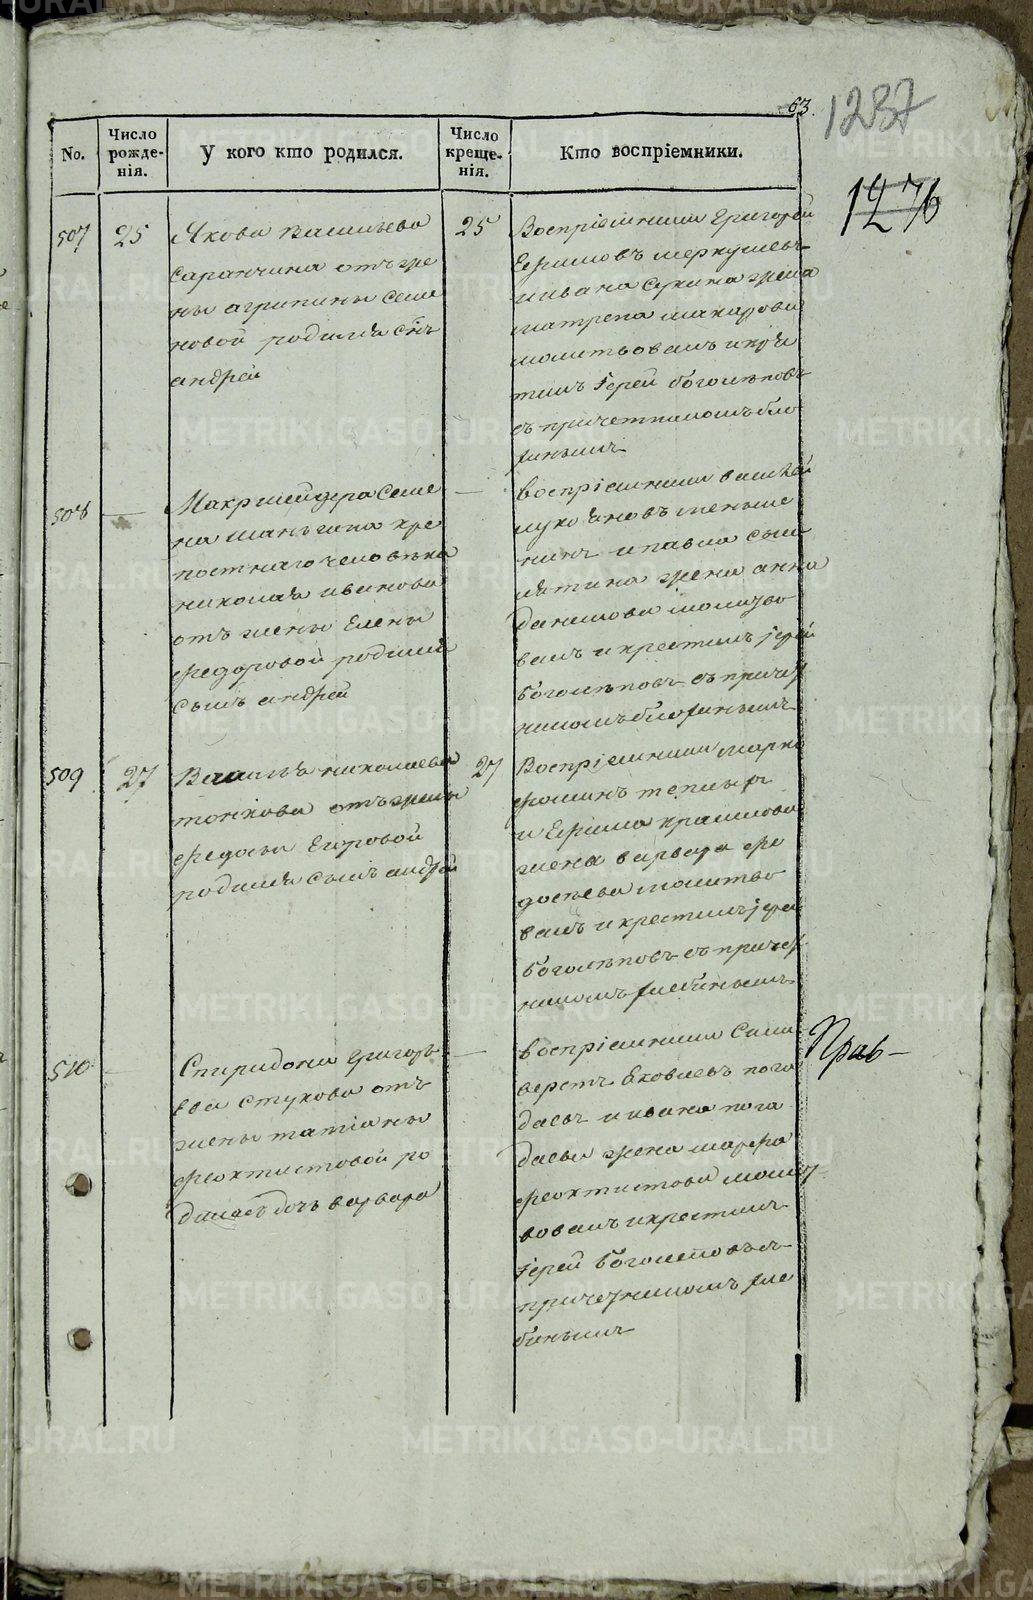 63.
1237
1276
No.
Число рожденія.
У кого кто родился.
Число крещенія.
Кто воспріемники.
507
25
Якова Васильева
Саранчина отъ же
ны агрипины семе
новой родился сынъ
андрей
25
Воспріемники Григорей
Ефимовъ меркурьевъ
и ивана Сукина жена
матрена макарова
молитвовалъ и кре
тилъ Іерей боголѣповъ
съ причетникомъ бло
508
—
Макршейдера Семе
на на кре
постнаго человѣка
николая иванова
отъ жены Елены
федоровой родился
сынъ андрей
—
Воспріемники василей
меньше
нинъ и павла сыи
жена анна
данилова молитво
валъ и крестилъ іерей
боголѣповъ съ причет
никомъ
509
27
Василья николаева
тонкова отъ жены
федосьи Егоровой
родился сынъ андрей
27
Воспріемники марко
фоминъ
и Ефима
жена варвара фе
досѣева молитво
валъ и крестилъ іерей
боголѣповъ съ причет
никомъ
510
—
Спиридона Григорь
ева стукова отъ
жены татіаны
феоктистовой ро
дилась дочь варвара
—
Воспріемники Сели
верстъ Яковлевъ пога
даевъ и ивана пога
даева жена марфа
феоктистова молит
вовалъ и крестилъ
Іерей боголеповъ съ
причетникомъ гле
бинымъ
Прав—
METRIKI.GASO-URAL.RU